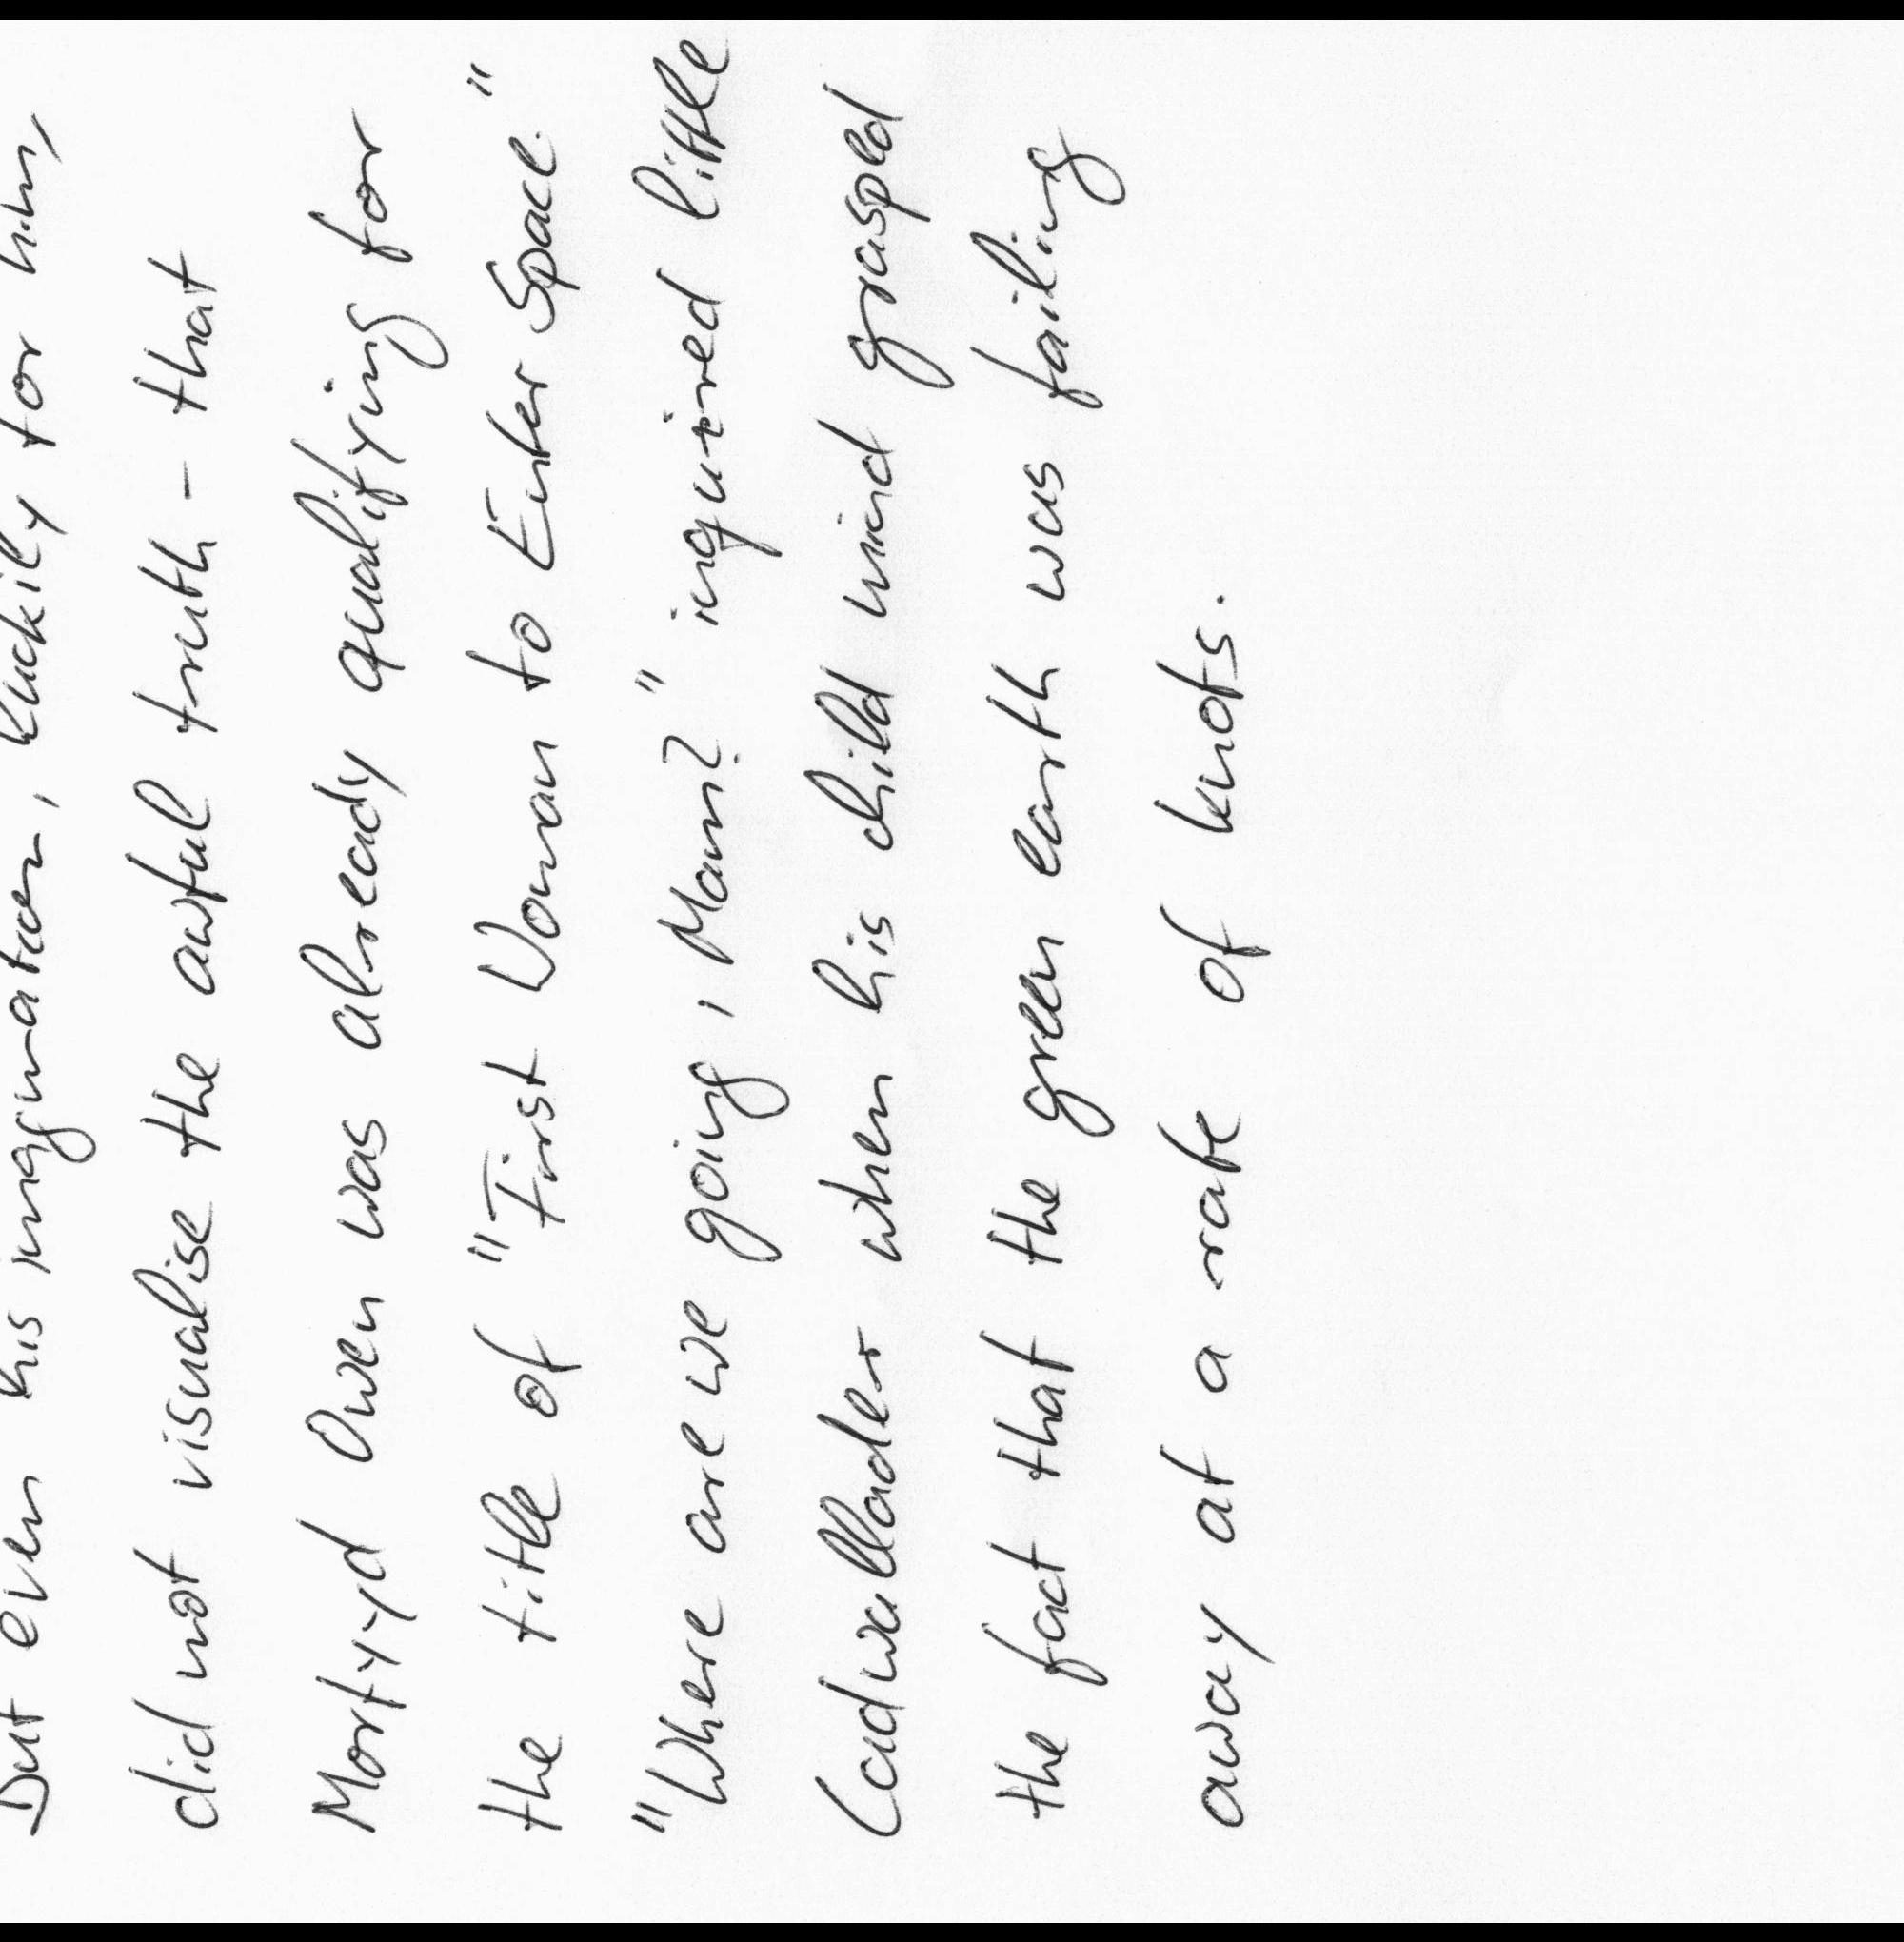 But even his imagination, luckily for him,
did not visualise the awful truth - that
Morfyd Owen was already qualifying for
the title of "First Woman to Enter Space."
"Where are we going, Mam?" inquired little
Cadwallader when his child mind grasped
the fact that the green earth was failing
away at a rate of knots.